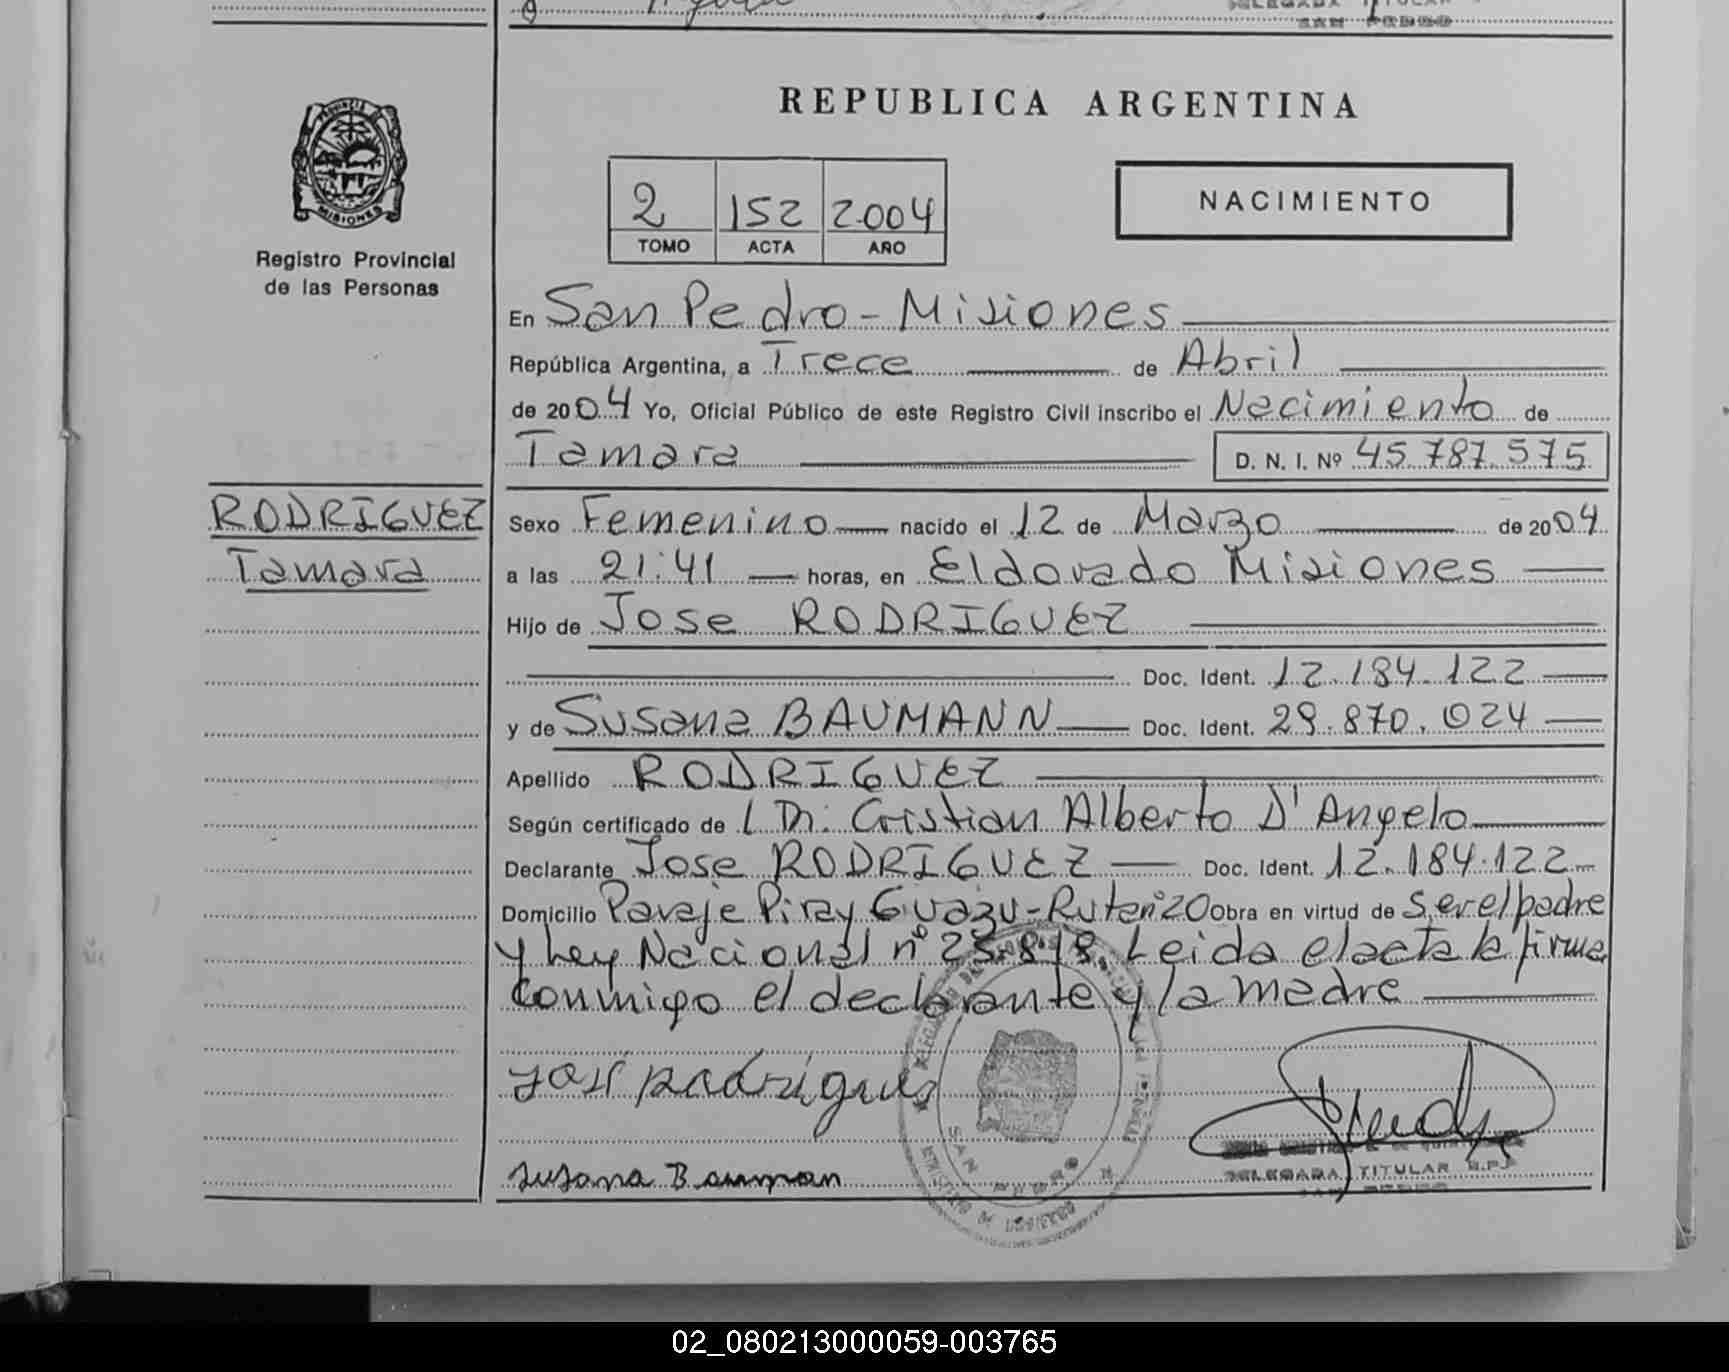 SAN PEDRO
REPUBLICA ARGENTINA
PROVINCIA
MISIONES
2 152 2004
TOMO ACTA AÑO
NACIMIENTO
Registro Provincial
de las Personas
En San Pedro - Misiones
República Argentina, a Trece de Abril
de 2004 Yo, Oficial Público de este Registro Civil inscribo el Nacimiento de
Tamara D. N. I. Nº 45.787.575
RODRIGUEZ
Tamara
Sexo Femenino nacido el 12 de Marzo de 2004
a las 21:41 horas, en Eldorado Misiones
Hijo de Jose RODRIGUEZ
Doc. Ident. 12.184.122
y de Susana BAUMANN Doc. Ident. 29.870.024
Apellido RODRIGUEZ
Según certificado de l Dr. Cristian Alberto D'Angelo
Declarante Jose RODRIGUEZ Doc. Ident. 12.184.122
Domicilio Paraje Piray Guazu - Ruta nº 20 Obra en virtud de Ser el padre
y Ley Nacional nº 23.818. Leida el acta la firma
conmigo el declarante y la madre
José Rodrigues
Susana Bauman
DELEGADA TITULAR R.P.
SAN PEDRO
02_080213000059-003765